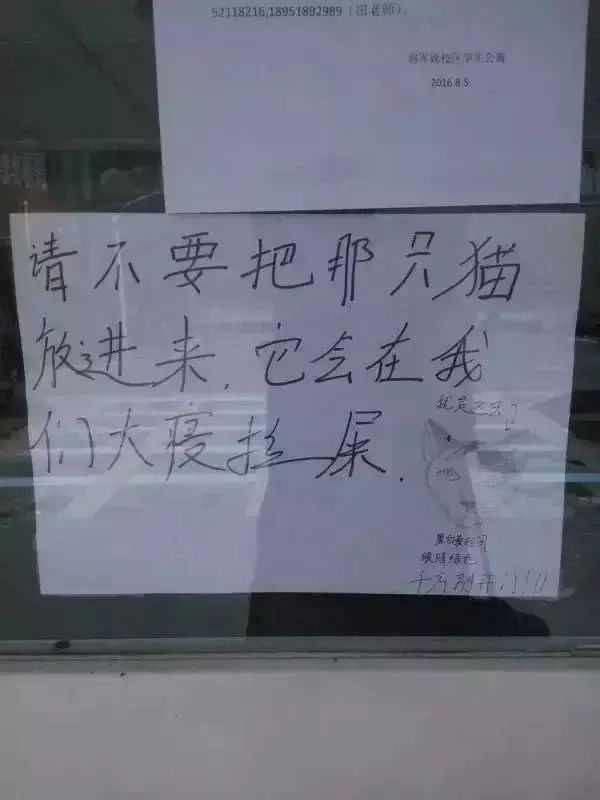 52118216,18951892989（田老师）.
将军路校区学生公寓
2016.8.5
请不要把那只猫
放进来，它会在我
们大寝拉屎．
就是这只
黑白黄相间
眼睛绿色
千万别开门!!!